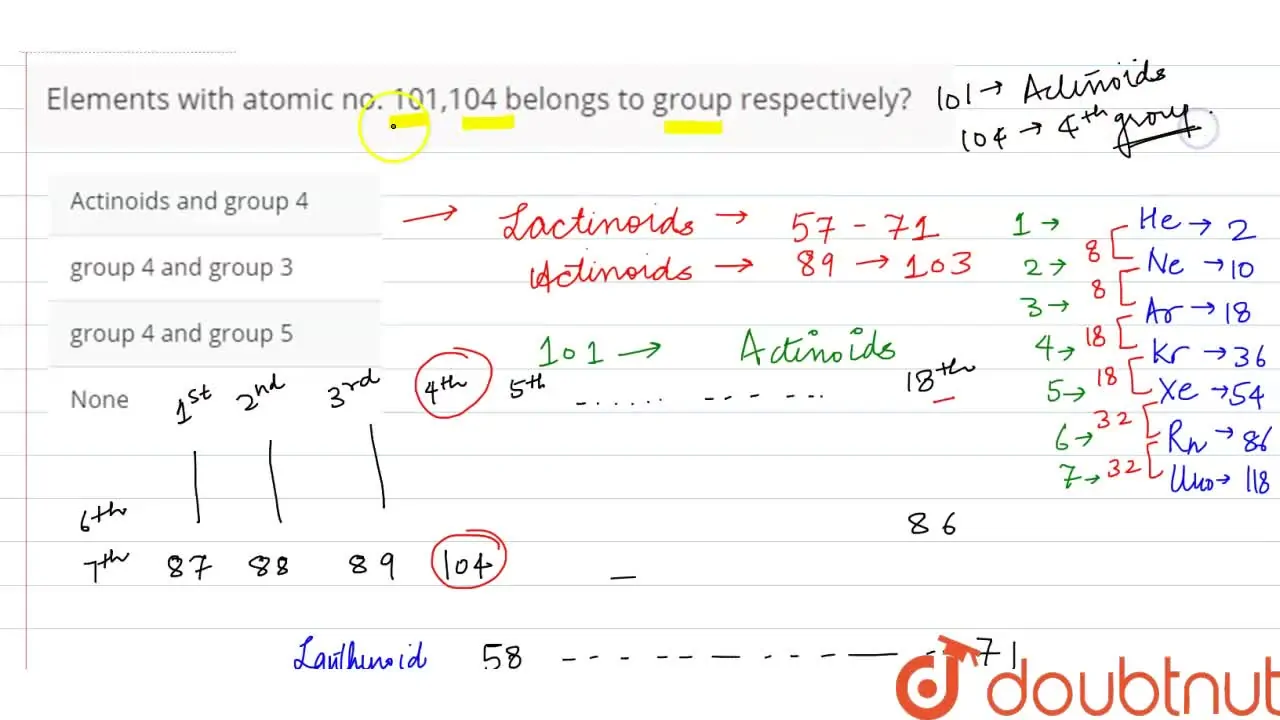 Elements with atomic no. 101,104 belongs to group respectively?
101 → Actinoids
104 → 4th group.
Actinoids and group 4
group 4 and group 3
group 4 and group 5
None
→ Lactinoids → 57 - 71
Actinoids → 89 → 103
101 → Actinoids
1 → He → 2
2 → 8 Ne → 10
3 → 8 Ar → 18
4 → 18 Kr → 36
5 → 18 Xe → 54
6 → 32 Rn → 86
7 → 32 Uuo → 118
1st 2nd 3rd 4th 5th ...... ----.. 18th
6th 86
7th 87 88 89 104 —
Lanthenoid 58 ---- — -- — -- 71
doubtnut